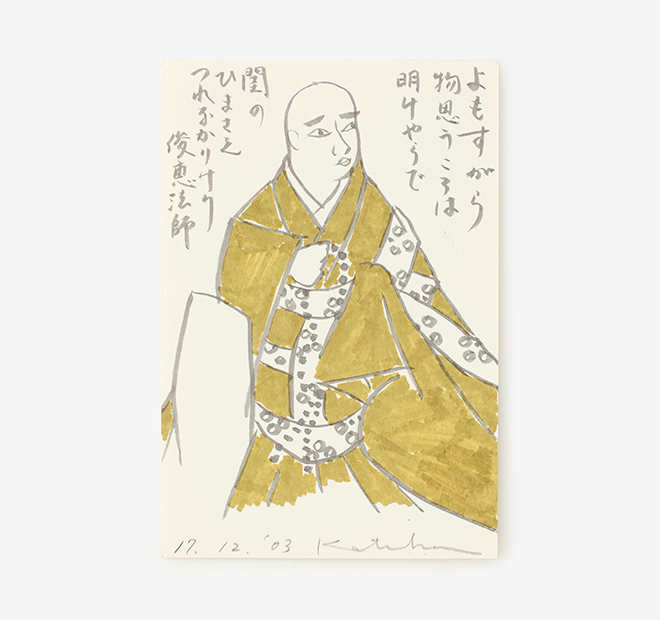 よもすがら
物思うころは
明けやらで
閨の
ひまさえ
つれなかりけり
俊恵法師
17. 12. '03